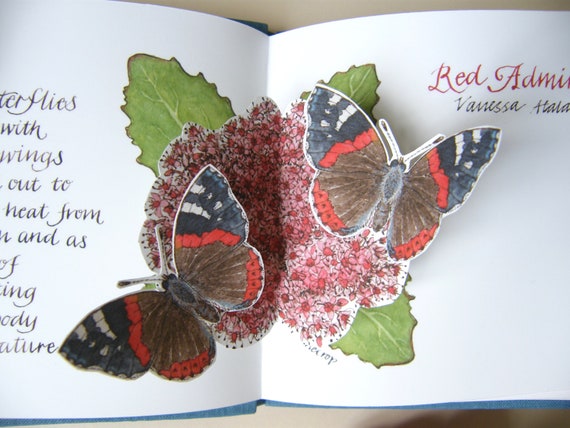 tterflies
with
wings
out to
heat from
and as
of
ing
ody
ature
Red Admir
Vanessa Atala